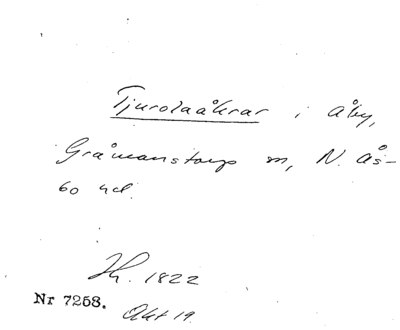 Tjurolaåkrar i Åby,
Gråmanstorps sn, N. Ås-
bo hd.
Hr. 1822
Nr 7258.
Akt 19